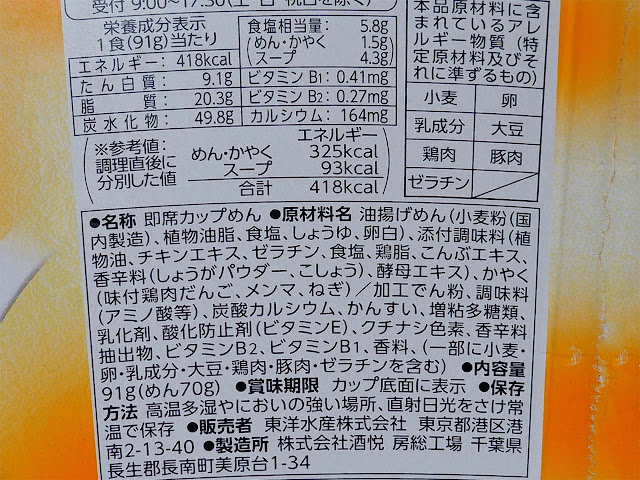 受付 9:00〜17:30(土・日・祝日を除く)
栄養成分表示
1食(91g)当たり
エネルギー: 418kcal
たん白質: 9.1g
脂質: 20.3g
炭水化物: 49.8g
食塩相当量: 5.8g
(めん・かやく 1.5g)
(スープ 4.3g)
ビタミン B1: 0.41mg
ビタミン B2: 0.27mg
カルシウム: 164mg
※参考値:
調理直後に
分別した値
エネルギー
めん・かやく 325kcal
スープ 93kcal
合計 418kcal
本品原材料に含
まれているアレ
ルギー物質(特
定原材料及びそ
れに準ずるもの)
小麦 卵
乳成分 大豆
鶏肉 豚肉
ゼラチン
●名称 即席カップめん ●原材料名 油揚げめん(小麦粉(国
内製造)、植物油脂、食塩、しょうゆ、卵白)、添付調味料(植
物油、チキンエキス、ゼラチン、食塩、鶏脂、こんぶエキス、
香辛料(しょうがパウダー、こしょう)、酵母エキス)、かやく
(味付鶏肉だんご、メンマ、ねぎ)/加工でん粉、調味料
(アミノ酸等)、炭酸カルシウム、かんすい、増粘多糖類、
乳化剤、酸化防止剤(ビタミンE)、クチナシ色素、香辛料
抽出物、ビタミンB2、ビタミンB1、香料、(一部に小麦・
卵・乳成分・大豆・鶏肉・豚肉・ゼラチンを含む) ●内容量
91g(めん70g) ●賞味期限 カップ底面に表示 ●保存
方法 高温多湿やにおいの強い場所、直射日光をさけ常
温で保存 ●販売者 東洋水産株式会社 東京都港区港
南2-13-40 ●製造所 株式会社酒悦 房総工場 千葉県
長生郡長南町美原台1-34